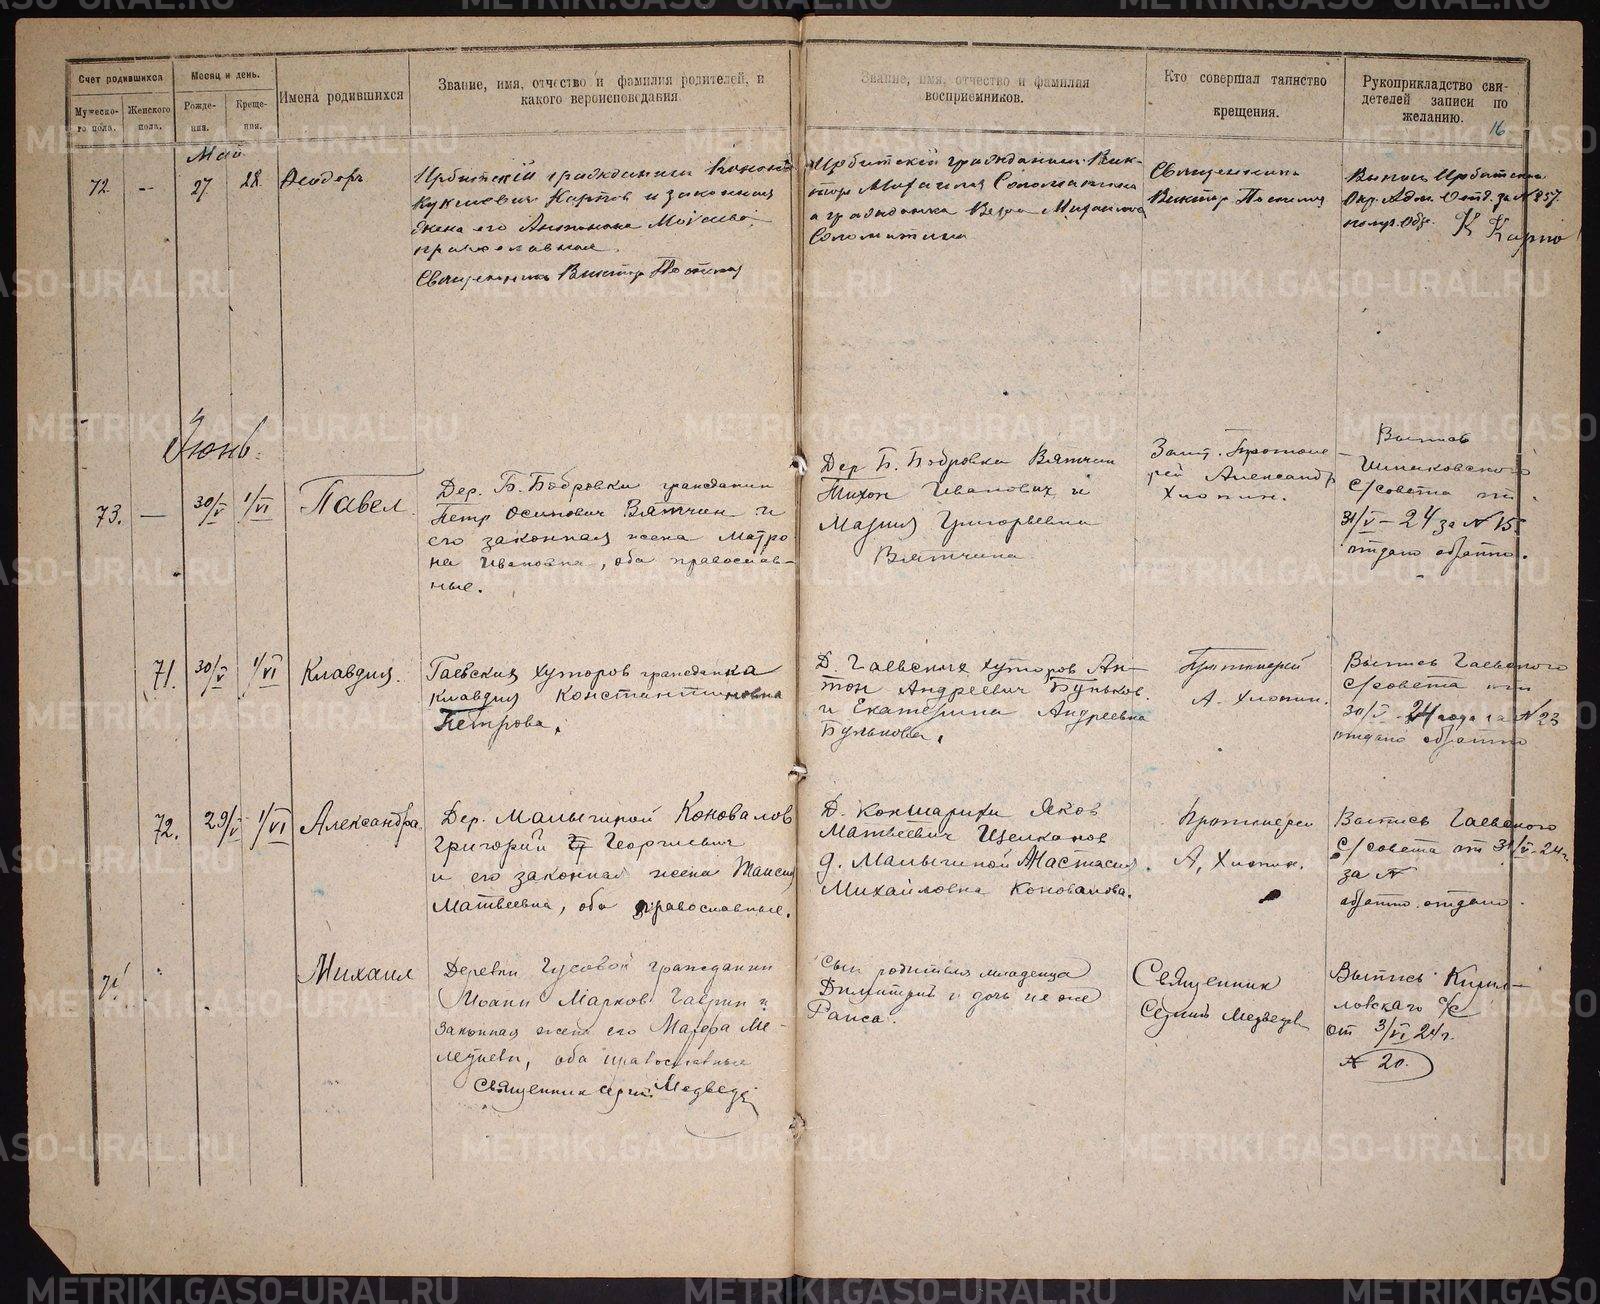 Счет родившихся
Мужеско-
го пола.
Женского
пола.
Месяц и день.
Рожде-
ния.
Креще-
ния.
Имена родившихся
Звание, имя, отчество и фамилия родителей, и
какого вероисповедания
Звание, имя, отчество и фамилия
восприемников.
Кто совершал таинство
крещения.
Рукоприкладство сви-
детелей записи по
желанию.
16
Май
72 -- 27 28 Феодоръ
Ирбитскій гражданинъ
Карпов и законная
жена его Антонина
православная
Священникъ Викторъ
Ирбитскій гражданинъ Вик-
торъ Соломатина
а гражданка Вера Михайлова
Соломатина
Священникъ
Викторъ
Выпись Ирбитска
Окр. Адм. Отд. за № 857.
К Карпо
Июнь
73. — 30/V 1/VI Павел
Дер. Б. Бобровки гражданин
Петр Осипович Вяткин и
его законная жена Матро
на Ивановна, оба православ-
ные.
Дер Б. Бобровки Вяткин
Тихон Иванович и
Мария Григорьевна
Вяткина
Протоие
рей Александр
Хлопин.
Выпись
С/совета от
31/V – 24 за № 15
отдано обратно.
71. 30/V 1/VI Клавдия.
Гаевских хуторов гражданка
Клавдия Константиновна
Петрова.
Д. Гаевских хуторов Ан-
тон Андреевич Буньков.
и Екатерина Андреевна
Бунькова.
Протоиерей
А. Хлопин.
Выпись Гаевского
С/совета от
30/V – 24 года за № 23
отдано обратно
72. 29/V 1/VI Александра
Дер. Малыгиной Коновалов
Григорий Георгиевич
и его законная жена Таисия
Матвеевна, оба православные.
Д. Кокшарихи Яков
Матвеевич Щелканов
д. Малыгиной Анастасия
Михайловна Коновалова.
Протоиереи
А. Хлопин.
Выпись Гаевского
с/совета от 31/V – 24 г.
за №
обратно отдано.
71 Михаил
Деревни Гусовой гражданин
Иоанн Марков Гаврин и
законная жена его Марфа Ме-
оба православные
Священник Медведе
Сын родителя младенца
Димитрий и дочь их же
Раиса.
Священник
Сергий Медведев
Выпись Кирил-
ловскаго с/с
от 3/VI 24 г.
№ 20.
METRIKI.GASO-URAL.RU